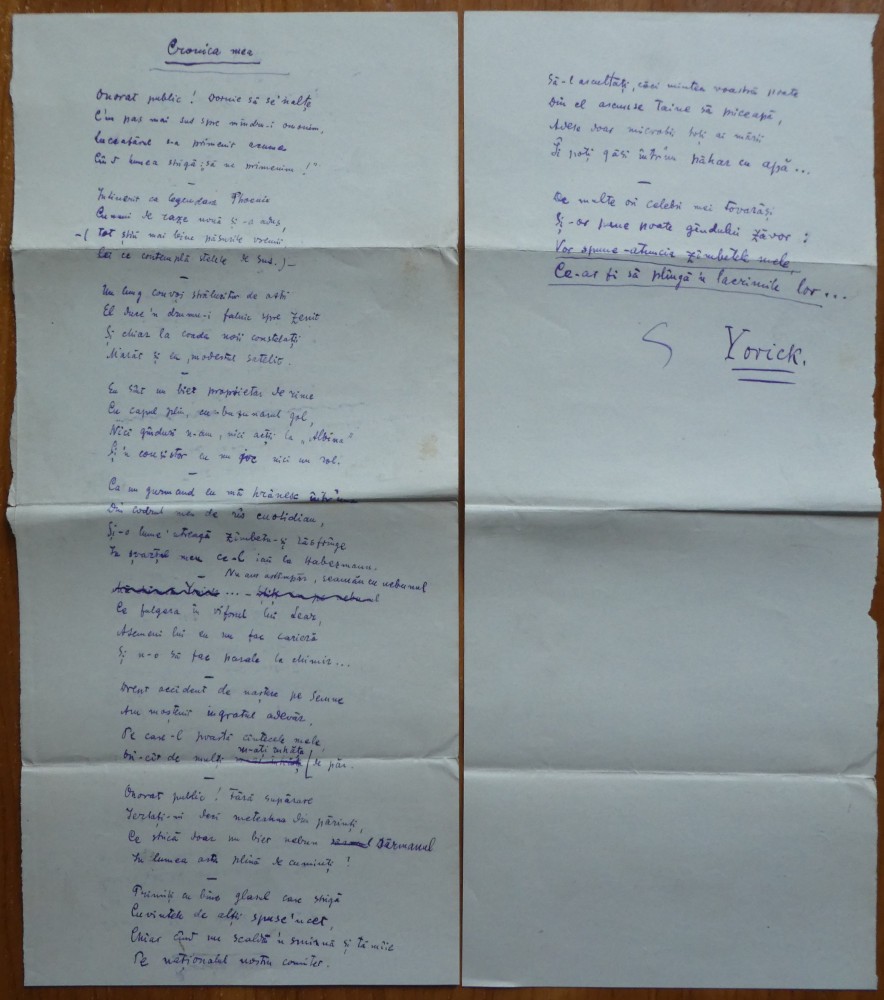 Cronica mea
Onorat public! Dornic să se'nalțe
C'un pas mai sus spre mîndru-i omonim,
Luceafărul s-a primenit acuma
Cînd lumea strigă: „să ne primenim!"
Întinerit ca legendara Phoenix
Cununi de raze nouă și-a adus,
—( Tot știu mai bine păsurile vremii
Cei ce contemplă stelele de sus.)—
Un lung convoi strălucitor de aștri
El duce'n drumu-i falnic spre zenit
Și chiar la coada noii constelații
M'arăt și eu, modestul satelit.
Eu sînt un biet proprietar de rime
Cu capul plin, cu buzunarul gol,
Nici gînduri n-am, nici acții la „Albina"
Și'n consistor eu nu joc nici un rol.
Ca un gurmand eu mă hrănesc
Din codrul meu de rîs cuotidian,
Și-o lume'ntreagă zîmbetu-și răsfrînge
În șvarțul meu ce-l iau la Habermann.
Nu am astîmpăr, seamăn cu nebunul
Ce fulgera în viforul lui Lear,
Asemeni lui eu nu fac carieră
Și n-o să fac parale la chimir...
Drept accident de naștere pe semne
Am moștenit ingratul adevăr,
Pe care-l poartă cîntecele mele
Ori-cît de mulți m-ați înhăța de păr.
Onorat public! Fără supărare
Iertați-mi deci meteahna din părinți,
Ce strică doar un biet nebun sărmanul
În lumea asta plină de cuminți!
Primiți cu bine glasul care strigă
Cuvintele de alții spuse'ncet,
Chiar cînd nu scaldă'n smirnă și tămîie
Pe naționalul nostru comitet.
Să-l ascultați, căci mintea voastră poate
Din el ascunse taine să priceapă,
Adesc doar microbii toți ai mării
Îi poți găsi într'un păhar cu apă...
De multe ori celebrii mei tovarăși
Și-or pune poate gîndului zăvor:
Vor spune-atuncia zîmbetele mele,
Ce-ar fi să plîngă'n lacrimile lor...
Yorick.